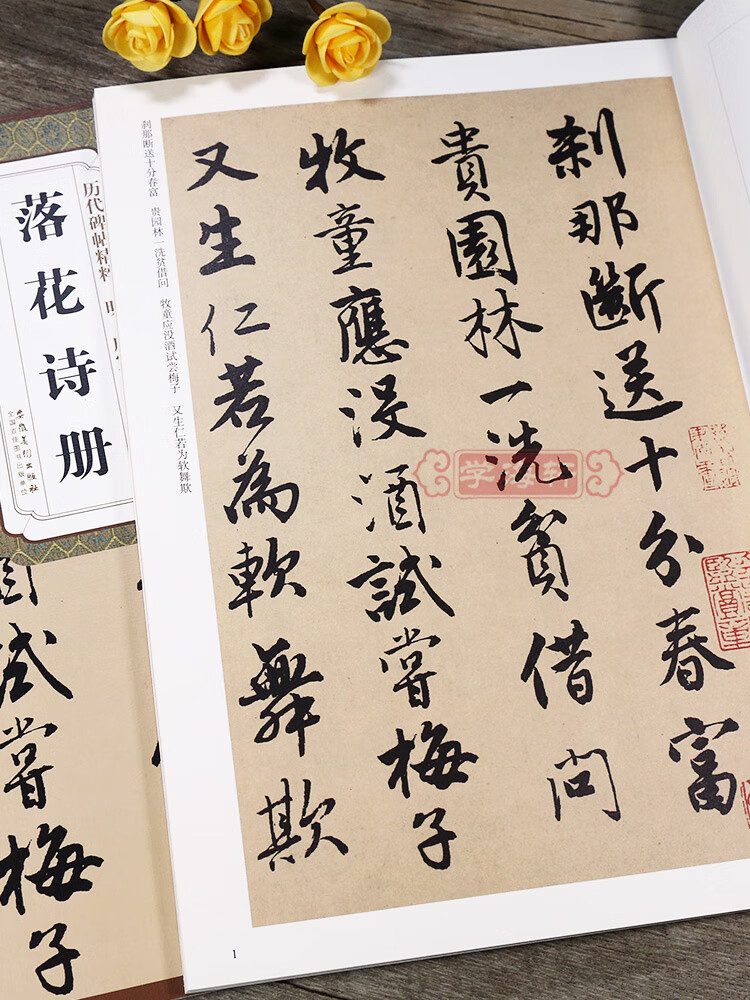 刹那断送十分春富　贵园林一洗贫借问　牧童应没酒试尝梅子　又生仁若为软舞欺
刹那斷送十分春富
貴園林一洗貧借問
牧童應没酒試嘗梅子
又生仁若為軟舞欺
学海轩
1
历代碑帖精粹
落花诗册
安徽美术出版社
全国百佳图书出版单位
試嘗梅子